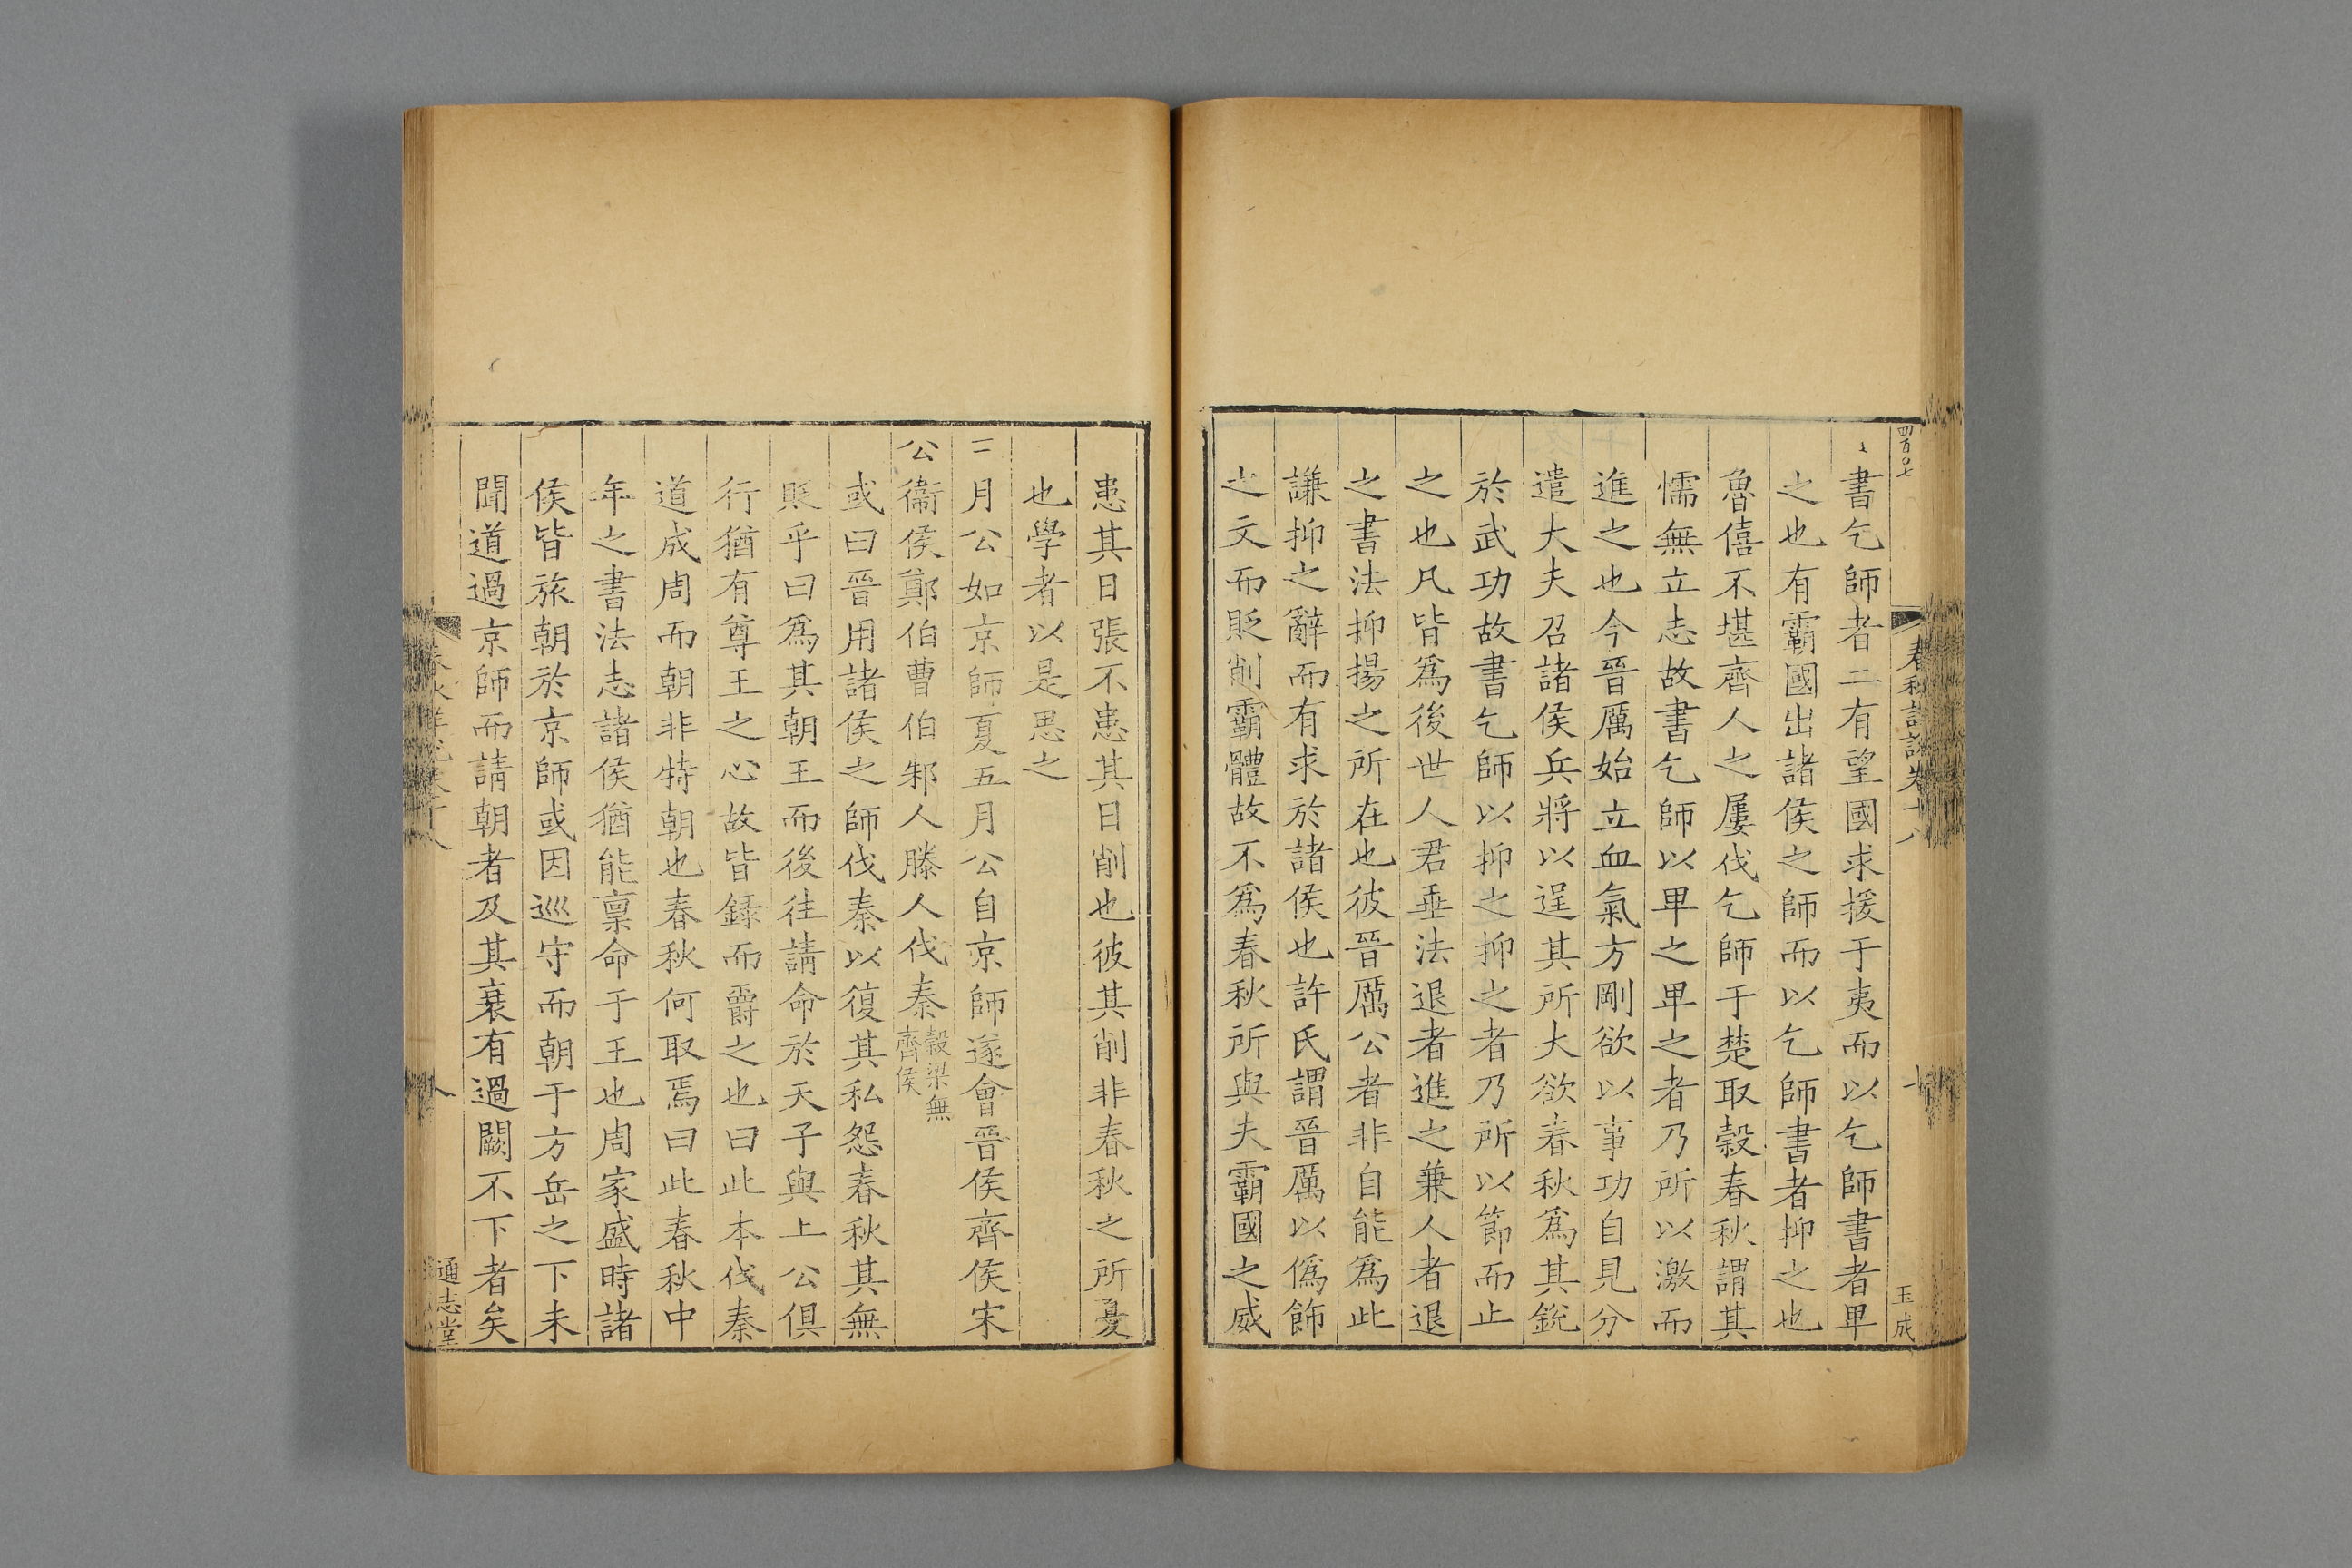 四百〇七
春秋詳說卷十八
十
玉成
書乞師者二有望國求援于夷而以乞師書者卑
之也有霸國出諸侯之師而以乞師書者抑之也
魯僖不堪齊人之屢伐乞師于楚取穀春秋謂其
懦無立志故書乞師以卑之卑之者乃所以激而
進之也今晉厲始立血氣方剛欲以事功自見分
遣大夫召諸侯兵將以逞其所大欲春秋爲其銳
於武功故書乞師以抑之抑之者乃所以節而止
之也凡皆爲後世人君垂法退者進之兼人者退
之書法抑揚之所在也彼晉厲公者非自能爲此
謙抑之辭而有求於諸侯也許氏謂晉厲以僞飾
之文而貶削霸體故不爲春秋所與夫霸國之威
患其日張不患其日削也彼其削非春秋之所憂
也學者以是思之
三月公如京師夏五月公自京師遂會晉侯齊侯宋
公衞侯鄭伯曹伯邾人滕人伐秦穀梁無
齊侯
或曰晉用諸侯之師伐秦以復其私怨春秋其無
貶乎曰爲其朝王而後往請命於天子與上公俱
行猶有尊王之心故皆錄而爵之也曰此本伐秦
道成周而朝非特朝也春秋何取焉曰此春秋中
年之書法志諸侯猶能禀命于王也周家盛時諸
侯皆旅朝於京師或因巡守而朝于方岳之下未
聞道過京師而請朝者及其衰有過闕不下者矣
通志堂